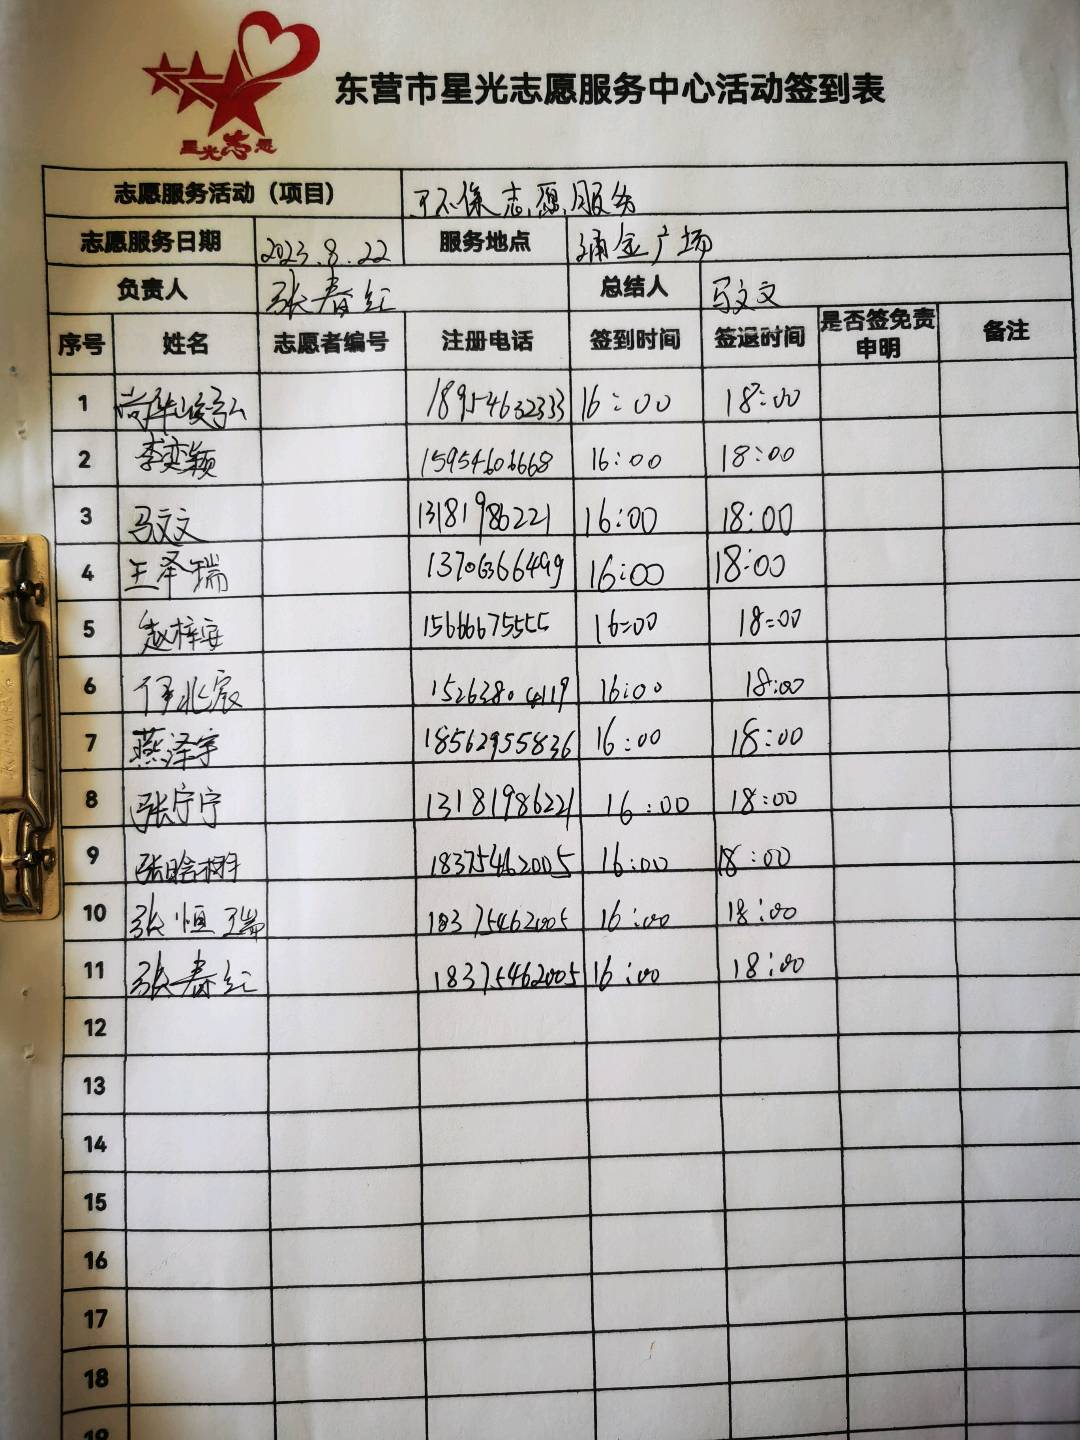 星光志愿
东营市星光志愿服务中心活动签到表
志愿服务活动（项目） 环保志愿服务
志愿服务日期 2023.8.22 服务地点 涌金广场
负责人 张春红 总结人 马文文
序号 姓名 志愿者编号 注册电话 签到时间 签退时间 是否签免责申明 备注
1 18954632333 16:00 18:00
2 李奕颖 15954606668 16:00 18:00
3 马文文 13181986221 16:00 18:00
4 王泽瑞 13706366499 16:00 18:00
5 赵梓安 15666675555 16:00 18:00
6 15263804119 16:00 18:00
7 燕泽宇 18562955836 16:00 18:00
8 张宁宁 13181986221 16:00 18:00
9 18375462005 16:00 18:00
10 张恒瑞 18375462005 16:00 18:00
11 张春红 18375462005 16:00 18:00
12
13
14
15
16
17
18
19